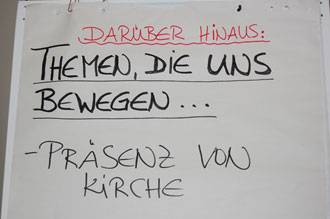 DARÜBER HINAUS:
THEMEN, DIE UNS
BEWEGEN...
- PRÄSENZ VON
KIRCHE